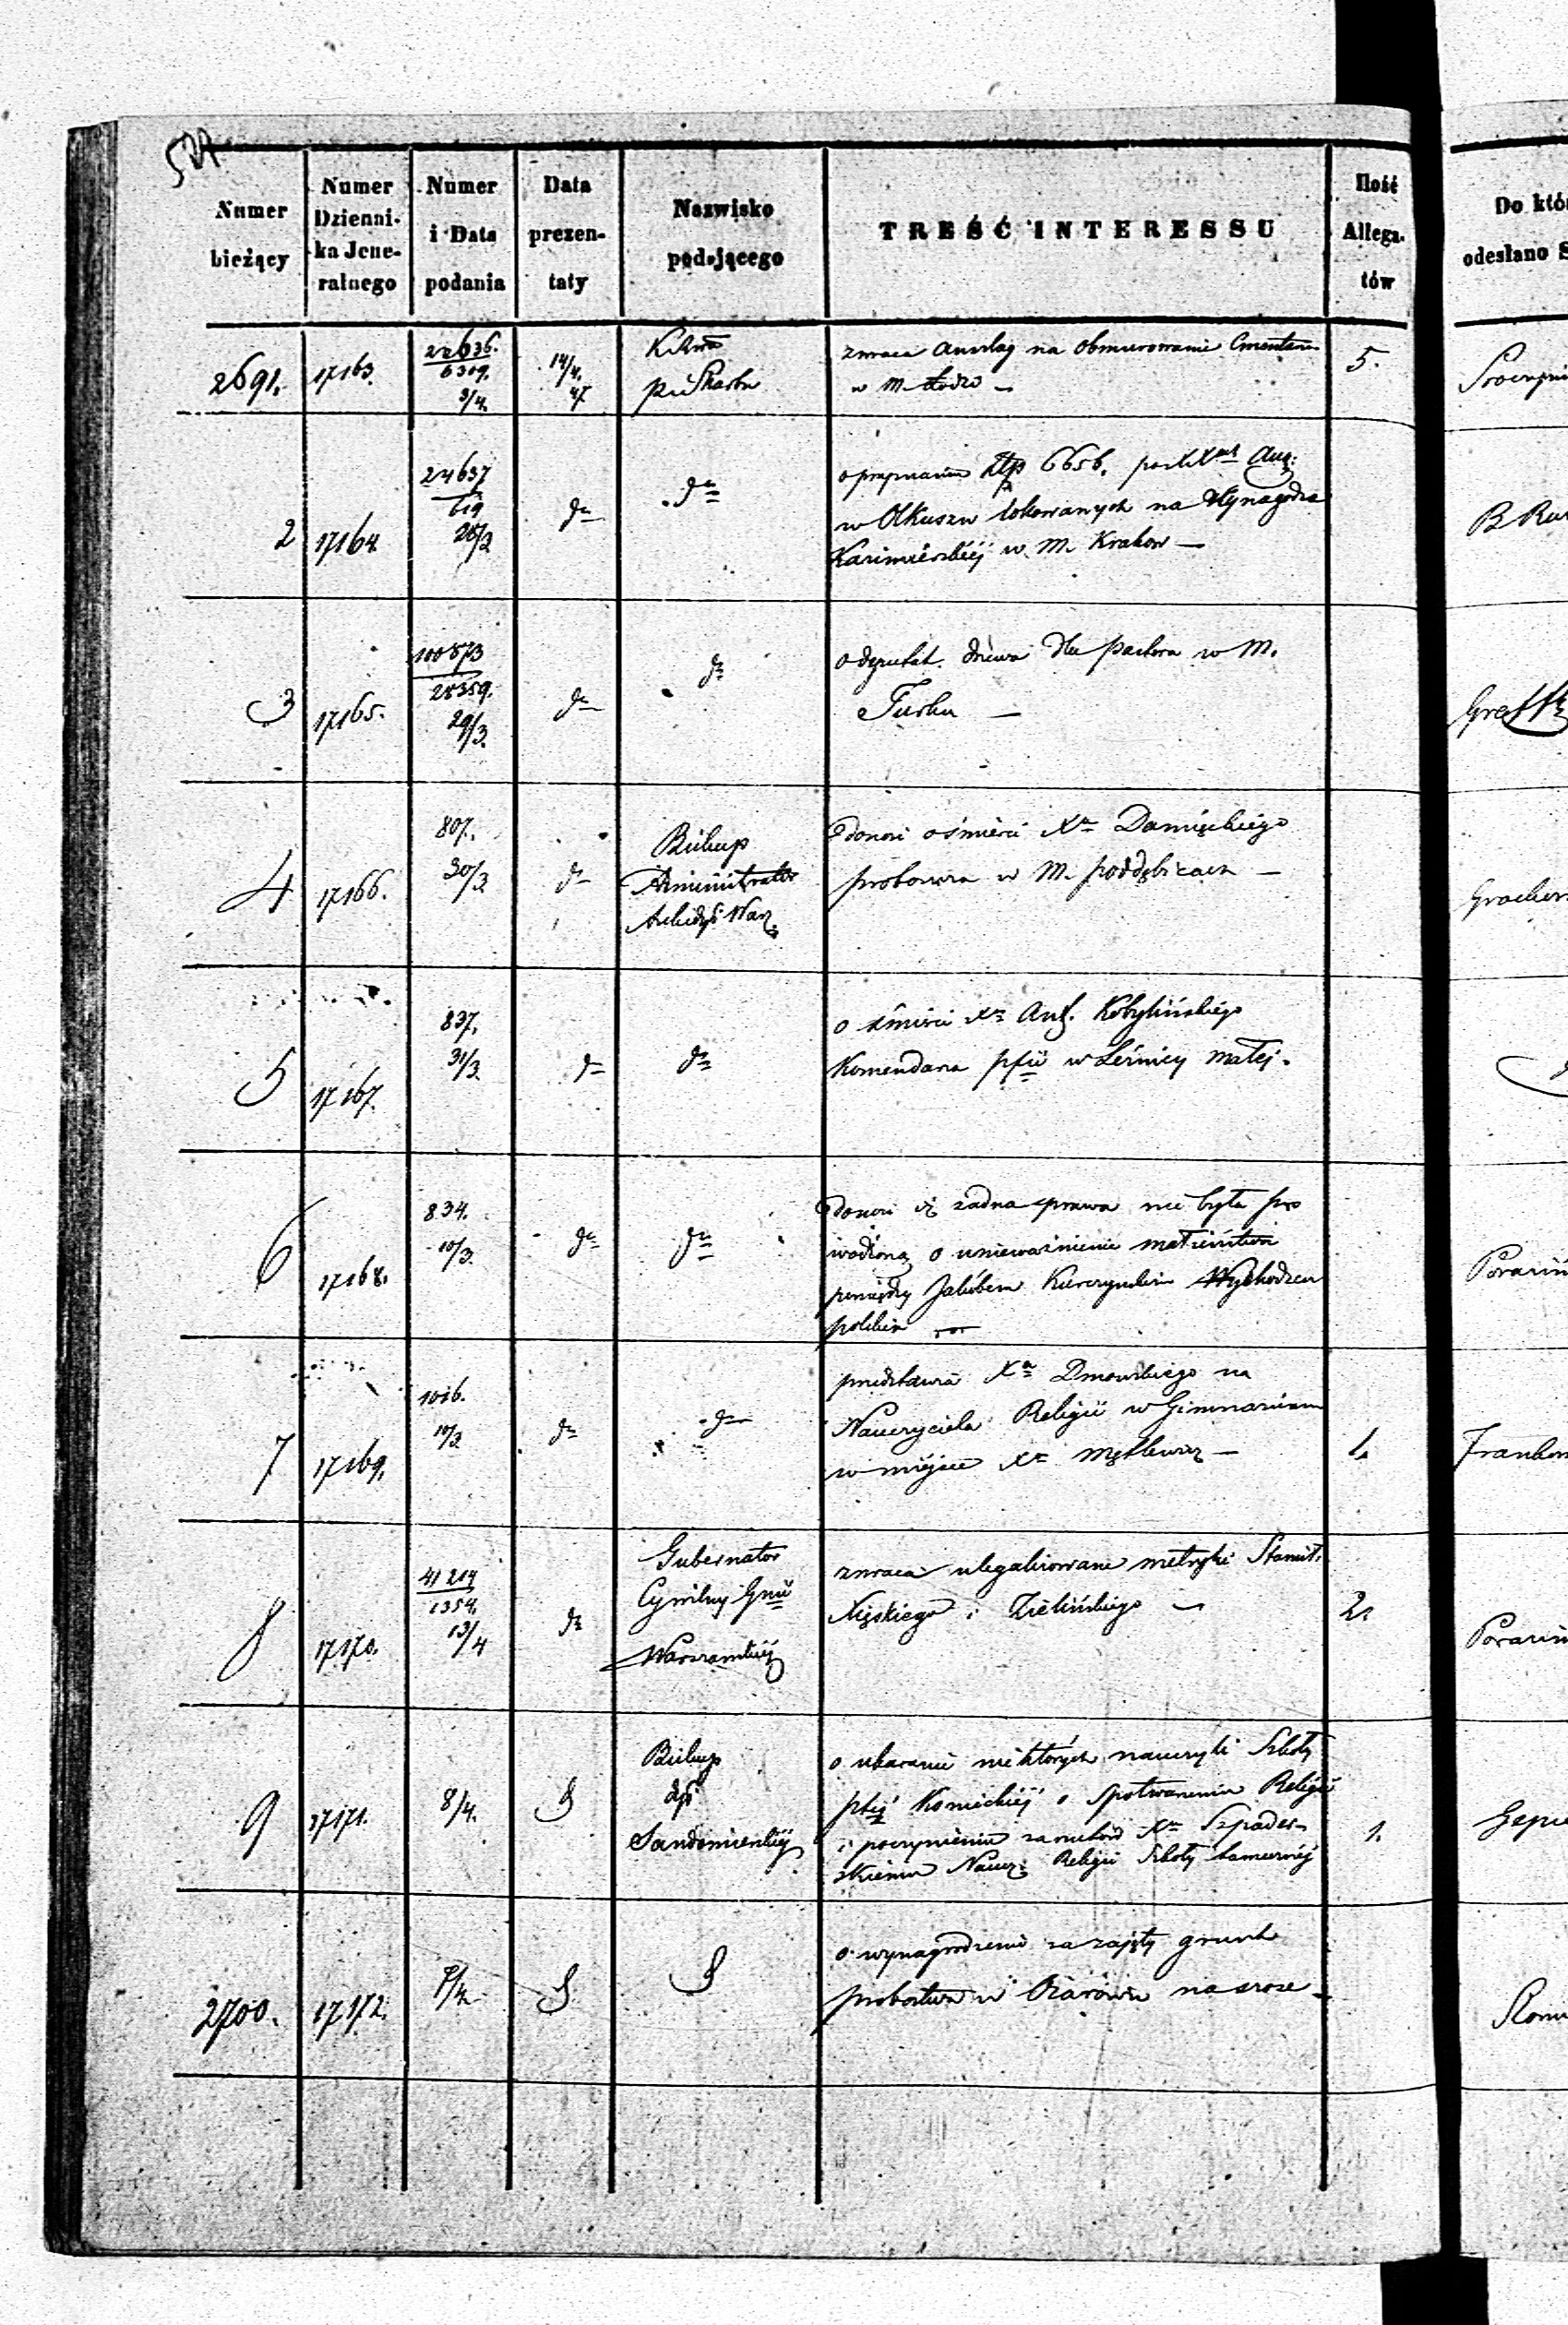 527
Numer bieżący
Numer Dzienni-ka Jene-ralnego
Numer i Data podania
Data prezen-taty
Nazwisko podającego
TREŚĆ INTERESSU
Ilość Allega-tów
Do któ
odesłano S
2691. 17163. 22636. 6309. 3/4. 14/4. 47 5.
P i Skarbu
zwraca Anszlag na obmurowanie Cmentarza
w M. Łodzi —
2 17164. 24637 619 28/3 dto dto
Złp 6656. Aug:
w Olkuszu lokowanych na Synagodze
Kazimierskiej w M. Krakow —
3 17165. 100873 28359. 29/3. dto dto
o deputat drzewa dla pastora w M.
Turku —
4 17166. 807. 30/3. dto
Biskup
Administrator
Archidyi Warz
donosi o śmierci Xa Damięckiego
proboszcza w M. Poddębicach —
5 17167. 837. 31/3. dto dto
o śmierci Xa Ant. Kobylińskiego
Komendarza pfii w Leśnicy Małej.
6 17168. 834. 10/3. dto dto
donosi iż żadna sprawa nie była pro
wadzoną o unieważnienie małżeństwa
pomiędzy Jakóbem Wychodzcu
polskim
7 17169. 1016. 10/3. dto dto 1.
przedstawia Xa Dmowskiego na
Nauczyciela Religii w Gimnazium
w miejsce Xa Mętlewicz —
8 17170. 41214 1354. 13/4 dto 2.
Gubernator
Cywilny Gnii
Warszawskiej
zwraca ulegalizowane metryki Stanisł.
i Zielińskiego —
9 17171. 8/4. d 1.
Biskup
dyi
Sandomierskiej
o ukaranie niektórych nauczycieli Szkoły
ptej Koneckiej o spotwarzenie Religii
i poczynienie zarzutów Xu Szpader-
skiemu Naucz: Religii Szkoły tamecznej
2700. 17172. 7/4. d d
o wynagrodzenie za zajęty grunt
probostwa w Ożarowie na szose —
Graff
Grochow
Frankow
Poraziń